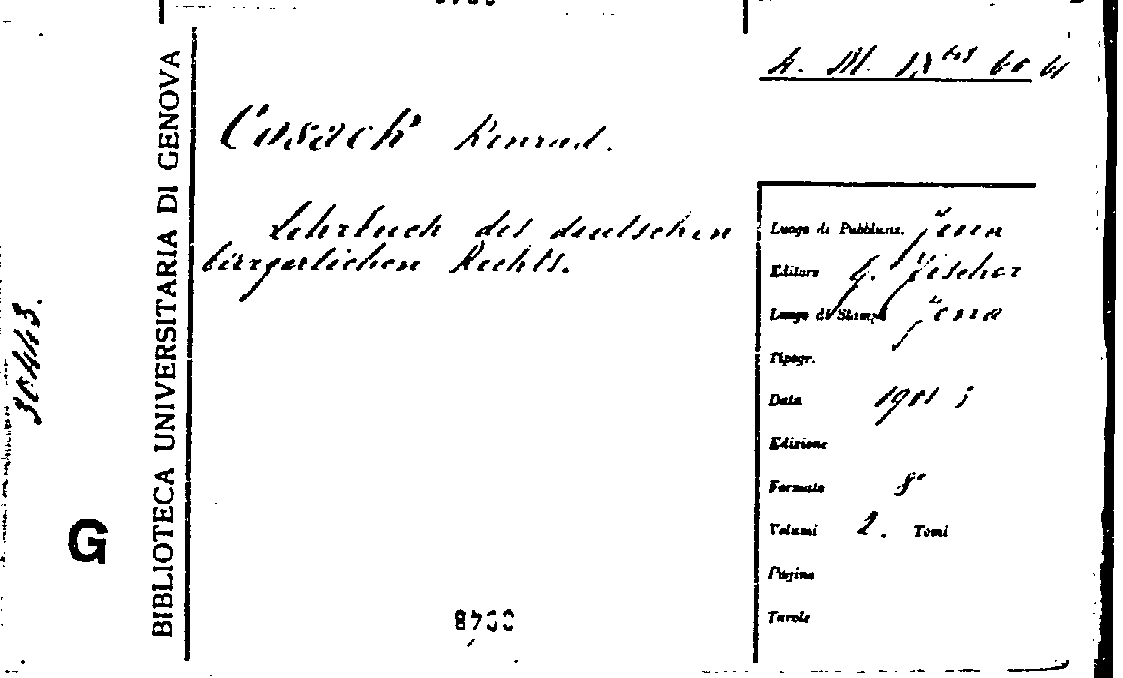 Cosack Konrad.
Lehrbuch des deutschen
bürgerlichen Rechts.
Luogo di Pubblicaz. Jena
Editore G. Fischer
Luogo di Stampa Jena
Tipogr.
Data 1901
Edizione
Formato 8°
Volumi 2. Tomi
Pagine
Tavole
8700
BIBLIOTECA UNIVERSITARIA DI GENOVA
G